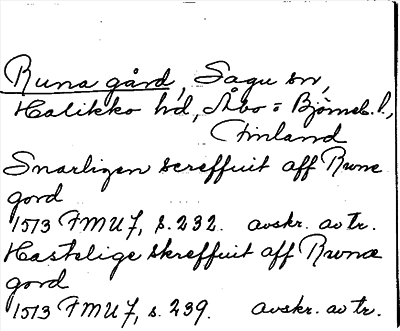 Runa gård, Sagu sn,
Halikko hd, Åbo = Björneb. l.,
Finland
Snarligen screffuit aff Rwne
gord
1513 FMU 7, s. 232. avskr. av tr.
Hastelige skreffuit aff Rwnæ
gord
1513 FMU 7, s. 239. avskr. av tr.